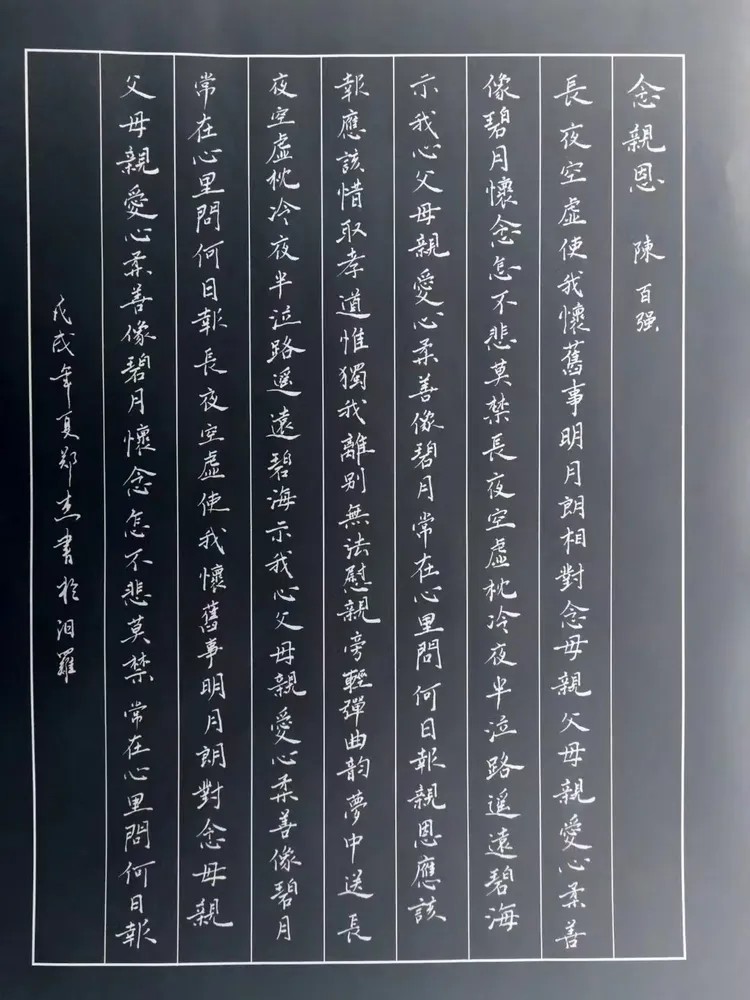 念親恩 陳百强
長夜空虛使我懷舊事明月朗相對念母親父母親愛心柔善
像碧月懷念怎不悲莫禁長夜空虛枕冷夜半泣路遥遠碧海
示我心父母親愛心柔善像碧月常在心里問何日報親恩應該
報應該惜取孝道惟獨我離别無法慰親旁輕彈曲韵夢中送長
夜空虛枕冷夜半泣路遥遠碧海示我心父母親愛心柔善像碧月
常在心里問何日報長夜空虛使我懷舊事明月朗對念母親
父母親愛心柔善像碧月懷念怎不悲莫禁常在心里問何日報
戊戌年夏郑杰書於汨羅